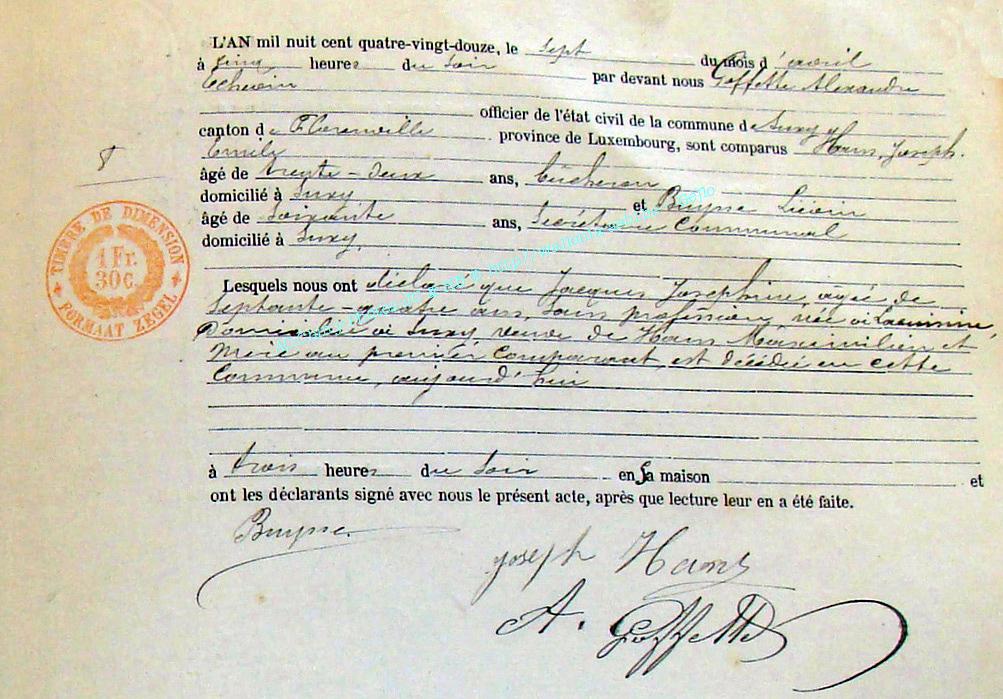 L'AN mil nuit cent quatre-vingt-douze, le sept du mois d'avril
à cinq heures du soir par devant nous Goffette Alexandre
Echevin
officier de l'état civil de la commune de Suxy
canton de Florenville province de Luxembourg, sont comparus Hans, Joseph.
Emile
âgé de trente-deux ans, bûcheron
domicilié à Suxy et Buysse Liévin
âgé de soixante ans, Secrétaire Communal
domicilié à Suxy.
Lesquels nous ont déclaré que Jacques Josephine, agée de
Septante-quatre ans, Sans profession, née à Lacuisine,
Domiciliée à Suxy veuve de Hans Maximilien et
Mère au premier Comparant, est Décédée en cette
Commune, aujourd'hui
à trois heures du soir en sa maison et
ont les déclarants signé avec nous le présent acte, après que lecture leur en a été faite.
Buysse
Joseph Hans
A. Goffette
8
TIMBRE DE DIMENSION
1 Fr.
30 C.
FORMAAT ZEGEL